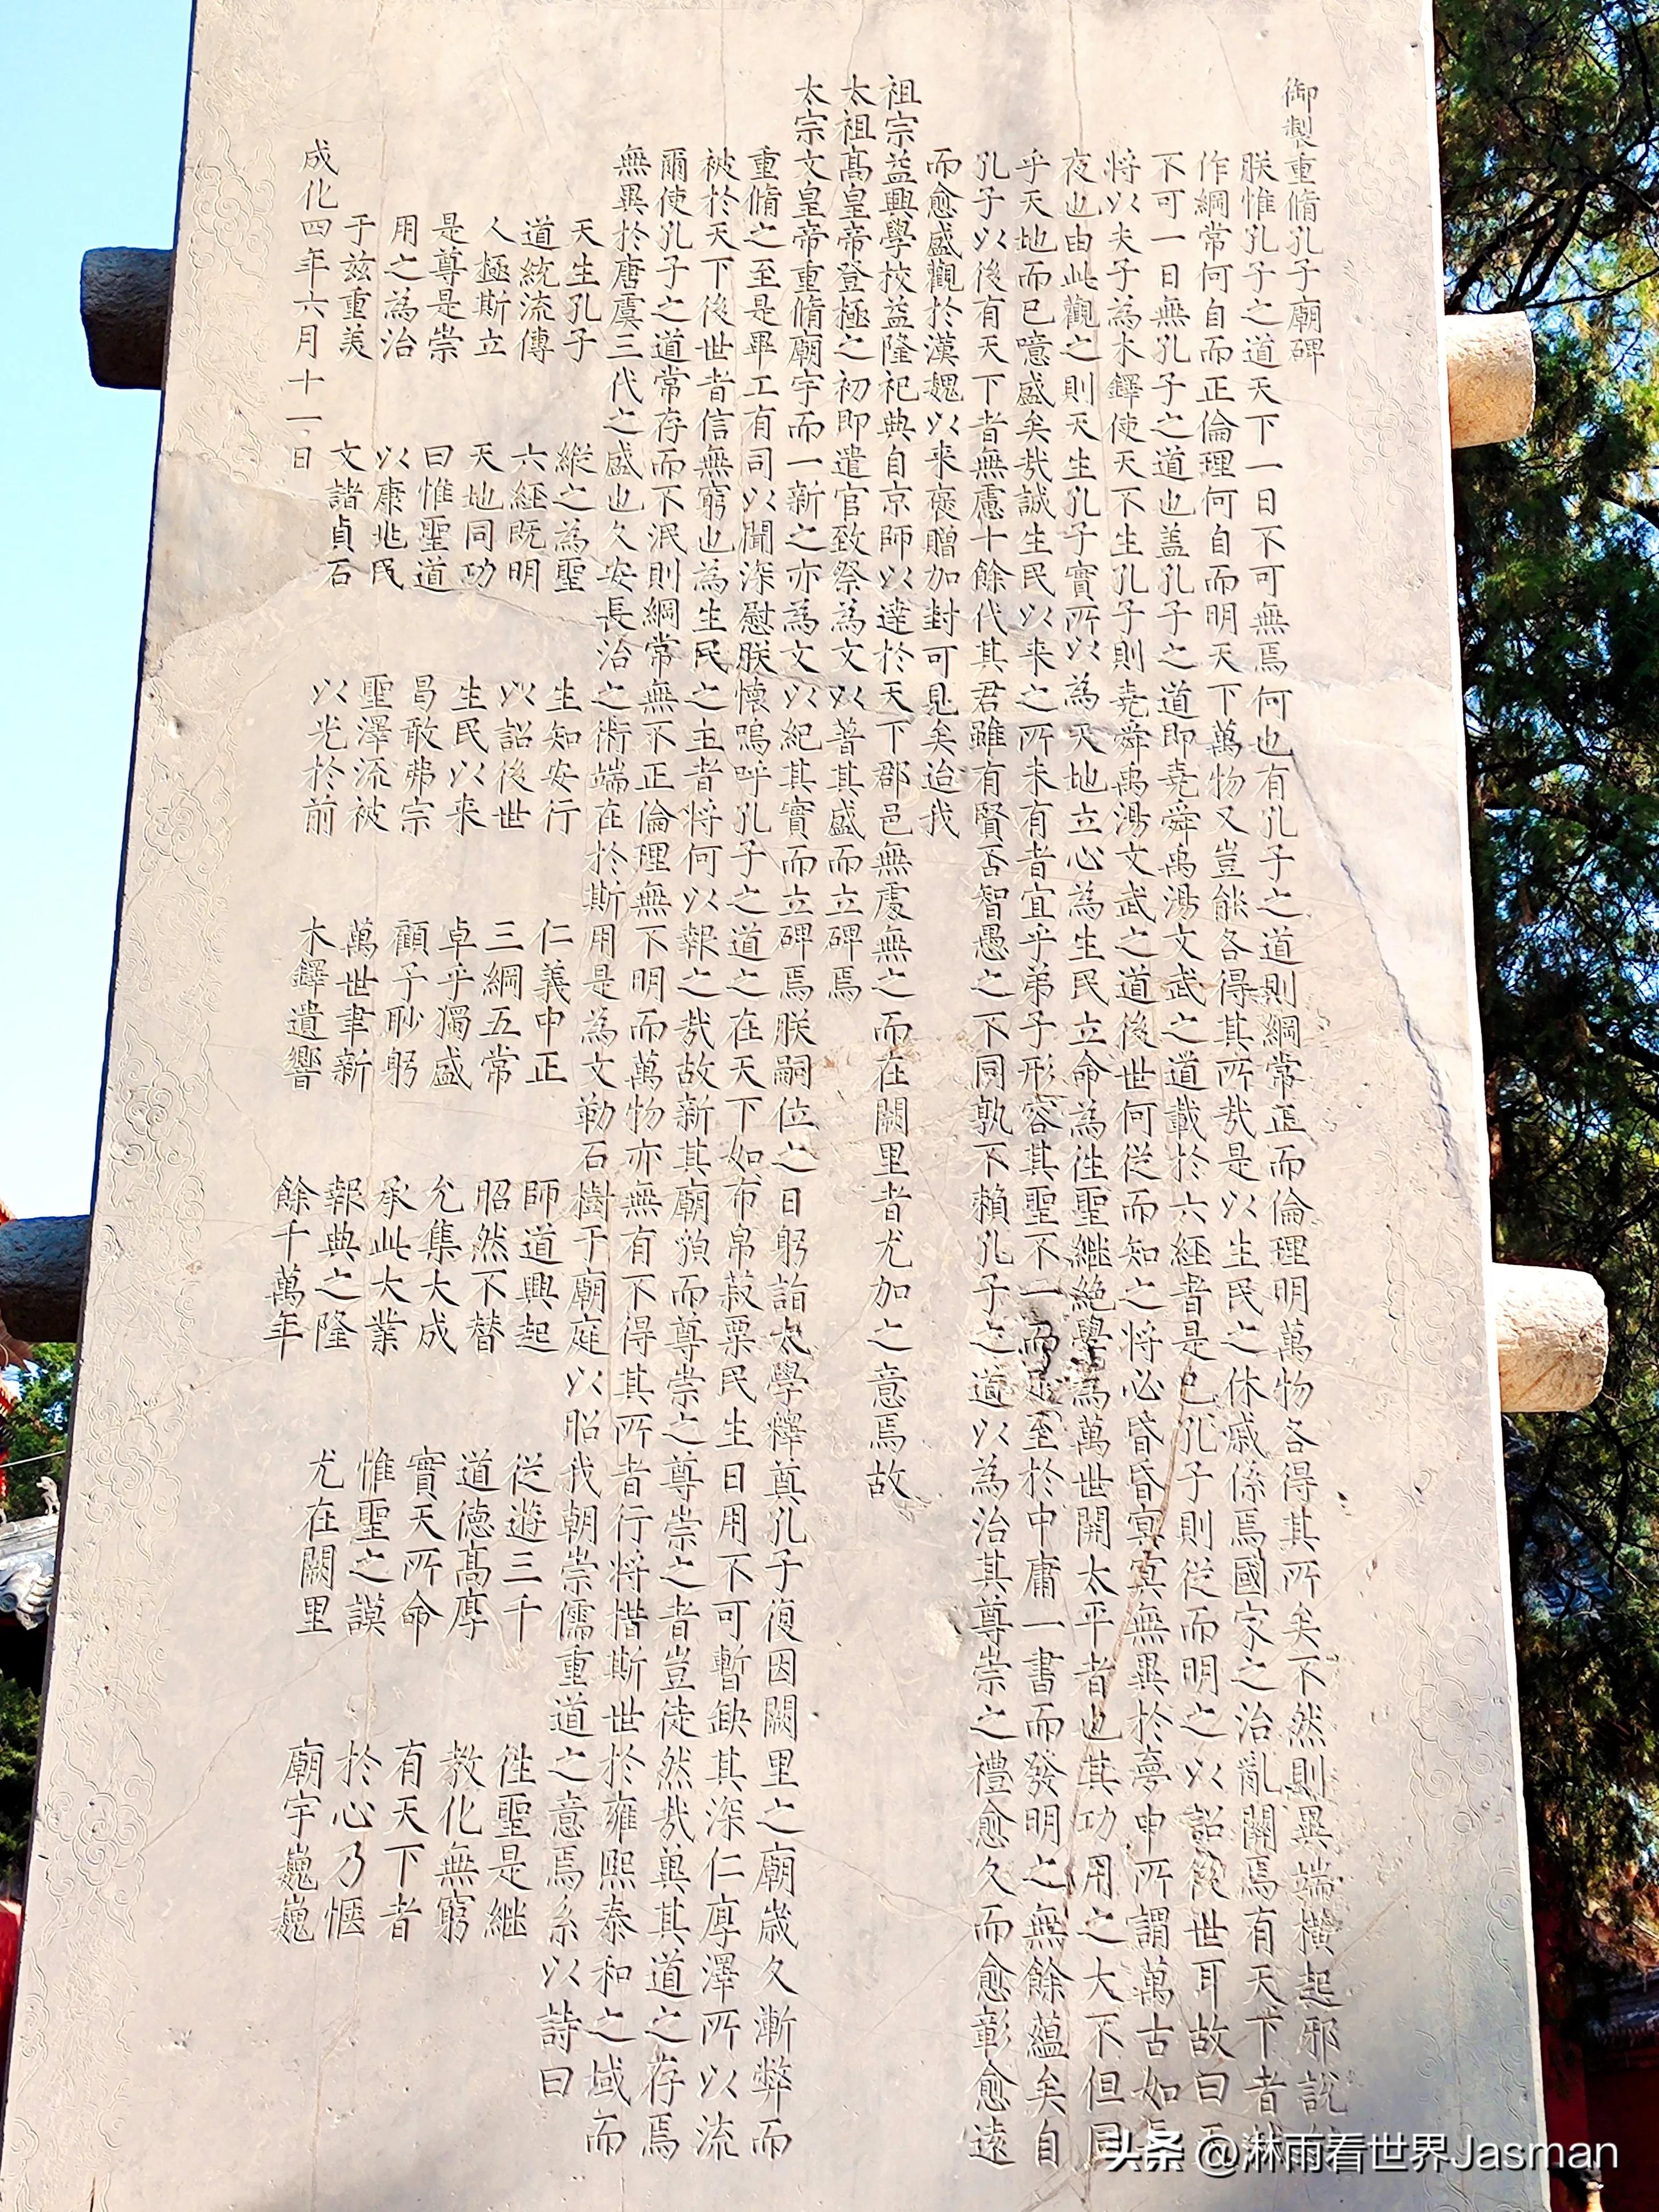 御製重脩孔子廟碑
朕惟孔子之道天下一日不可無焉何也有孔子之道則綱常正而倫理明萬物各得其所矣不然則異端橫起邪說
作綱常何自而正倫理何自而明天下萬物又豈能各得其所㢤是以生民之休戚係焉國家之治亂關焉有天下者
不可一日無孔子之道也盖孔子之道即堯舜禹湯文武之道載於六經者是已孔子則從而明之以詔後世耳故曰
将以夫子為木鐸使天不生孔子則堯舜禹湯文武之道後世何從而知之将必昏昏冥冥無異於夢中所謂萬古如
夜也由此觀之則天生孔子實所以為天地立心為生民立命為徃聖継絶學為萬世開太平者也其功用之大不但同
乎天地而已噫盛矣㢤誠生民以来之所未有者宜乎弟子形容其聖不一而足至於中庸一書而發明之無餘蘊矣自
孔子以後有天下者無慮十餘代其君雖有賢否智愚之不同孰不賴孔子之道以為治其尊崇之禮愈久而愈彰愈遠
而愈盛觀於漢魏以来褒贈加封可見矣迨我
祖宗益興學校益隆祀典自京師以達於天下郡邑無處無之而在闕里者尤加之意焉故
太祖髙皇帝登極之初即遣官致祭為文以著其盛而立碑焉
太宗文皇帝重脩廟宇而一新之亦為文以紀其實而立碑焉朕嗣位之日躬詣太學釋奠孔子復因闕里之廟歲久漸弊而
重脩之至是畢工有司以聞深慰朕懷嗚呼孔子之道之在天下如布帛菽粟民生日用不可暫缺其深仁厚澤所以流
被於天下後世者信無窮也為生民之主者将何以報之㢤故新其廟貌而尊崇之尊崇之者豈徒然㢤冀其道之存焉
爾使孔子之道常存而不泯則綱常無不正倫理無不明而萬物亦無有不得其所者行将措斯世於雍熙泰和之域而
無異於唐虞三代之盛也久安長治之術端在於斯用是為文勒石樹于廟庭以昭我朝崇儒重道之意焉系以詩曰
天生孔子　縱之為聖　生知安行　仁義中正　師道興起　從遊三千　徃聖是継
道統流傳　六經既明　以詔後世　三綱五常　昭然不替　道德髙厚　教化無窮
人極斯立　天地同功　生民以来　卓乎獨盛　允集大成　實天所命　有天下者
是尊是崇　曰惟聖道　曷敢弗宗　顧予眇躬　承此大業　惟聖之謨　於心乃愜
用之為治　以康兆民　聖澤流被　萬世聿新　報典之隆　尤在闕里　廟宇巍巍
于兹重美　文諸貞石　以光於前　木鐸遺響　餘千萬年
成化四年六月十一日
头条 @淋雨看世界Jasman